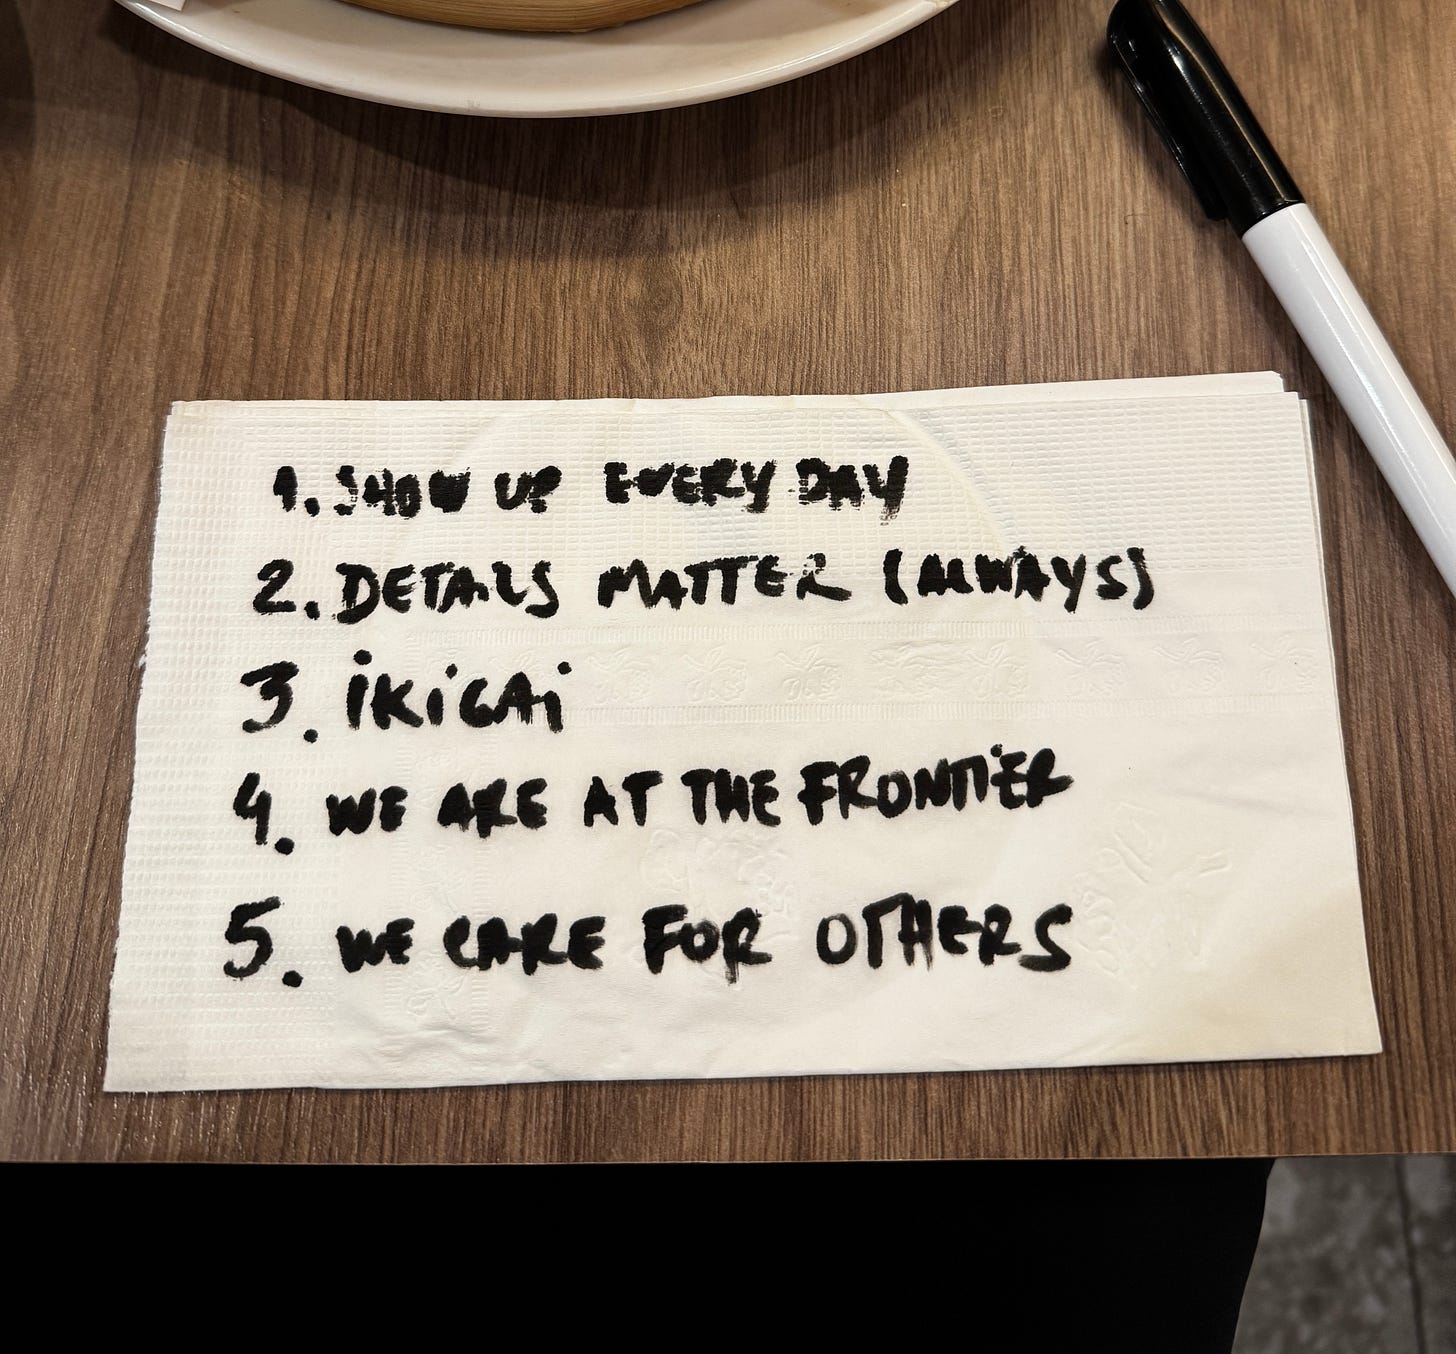 1. SHOW UP EVERY DAY
2. DETAILS MATTER (ALWAYS)
3. iKiGAi
4. WE ARE AT THE FRONTiER
5. WE CARE FOR OTHERS